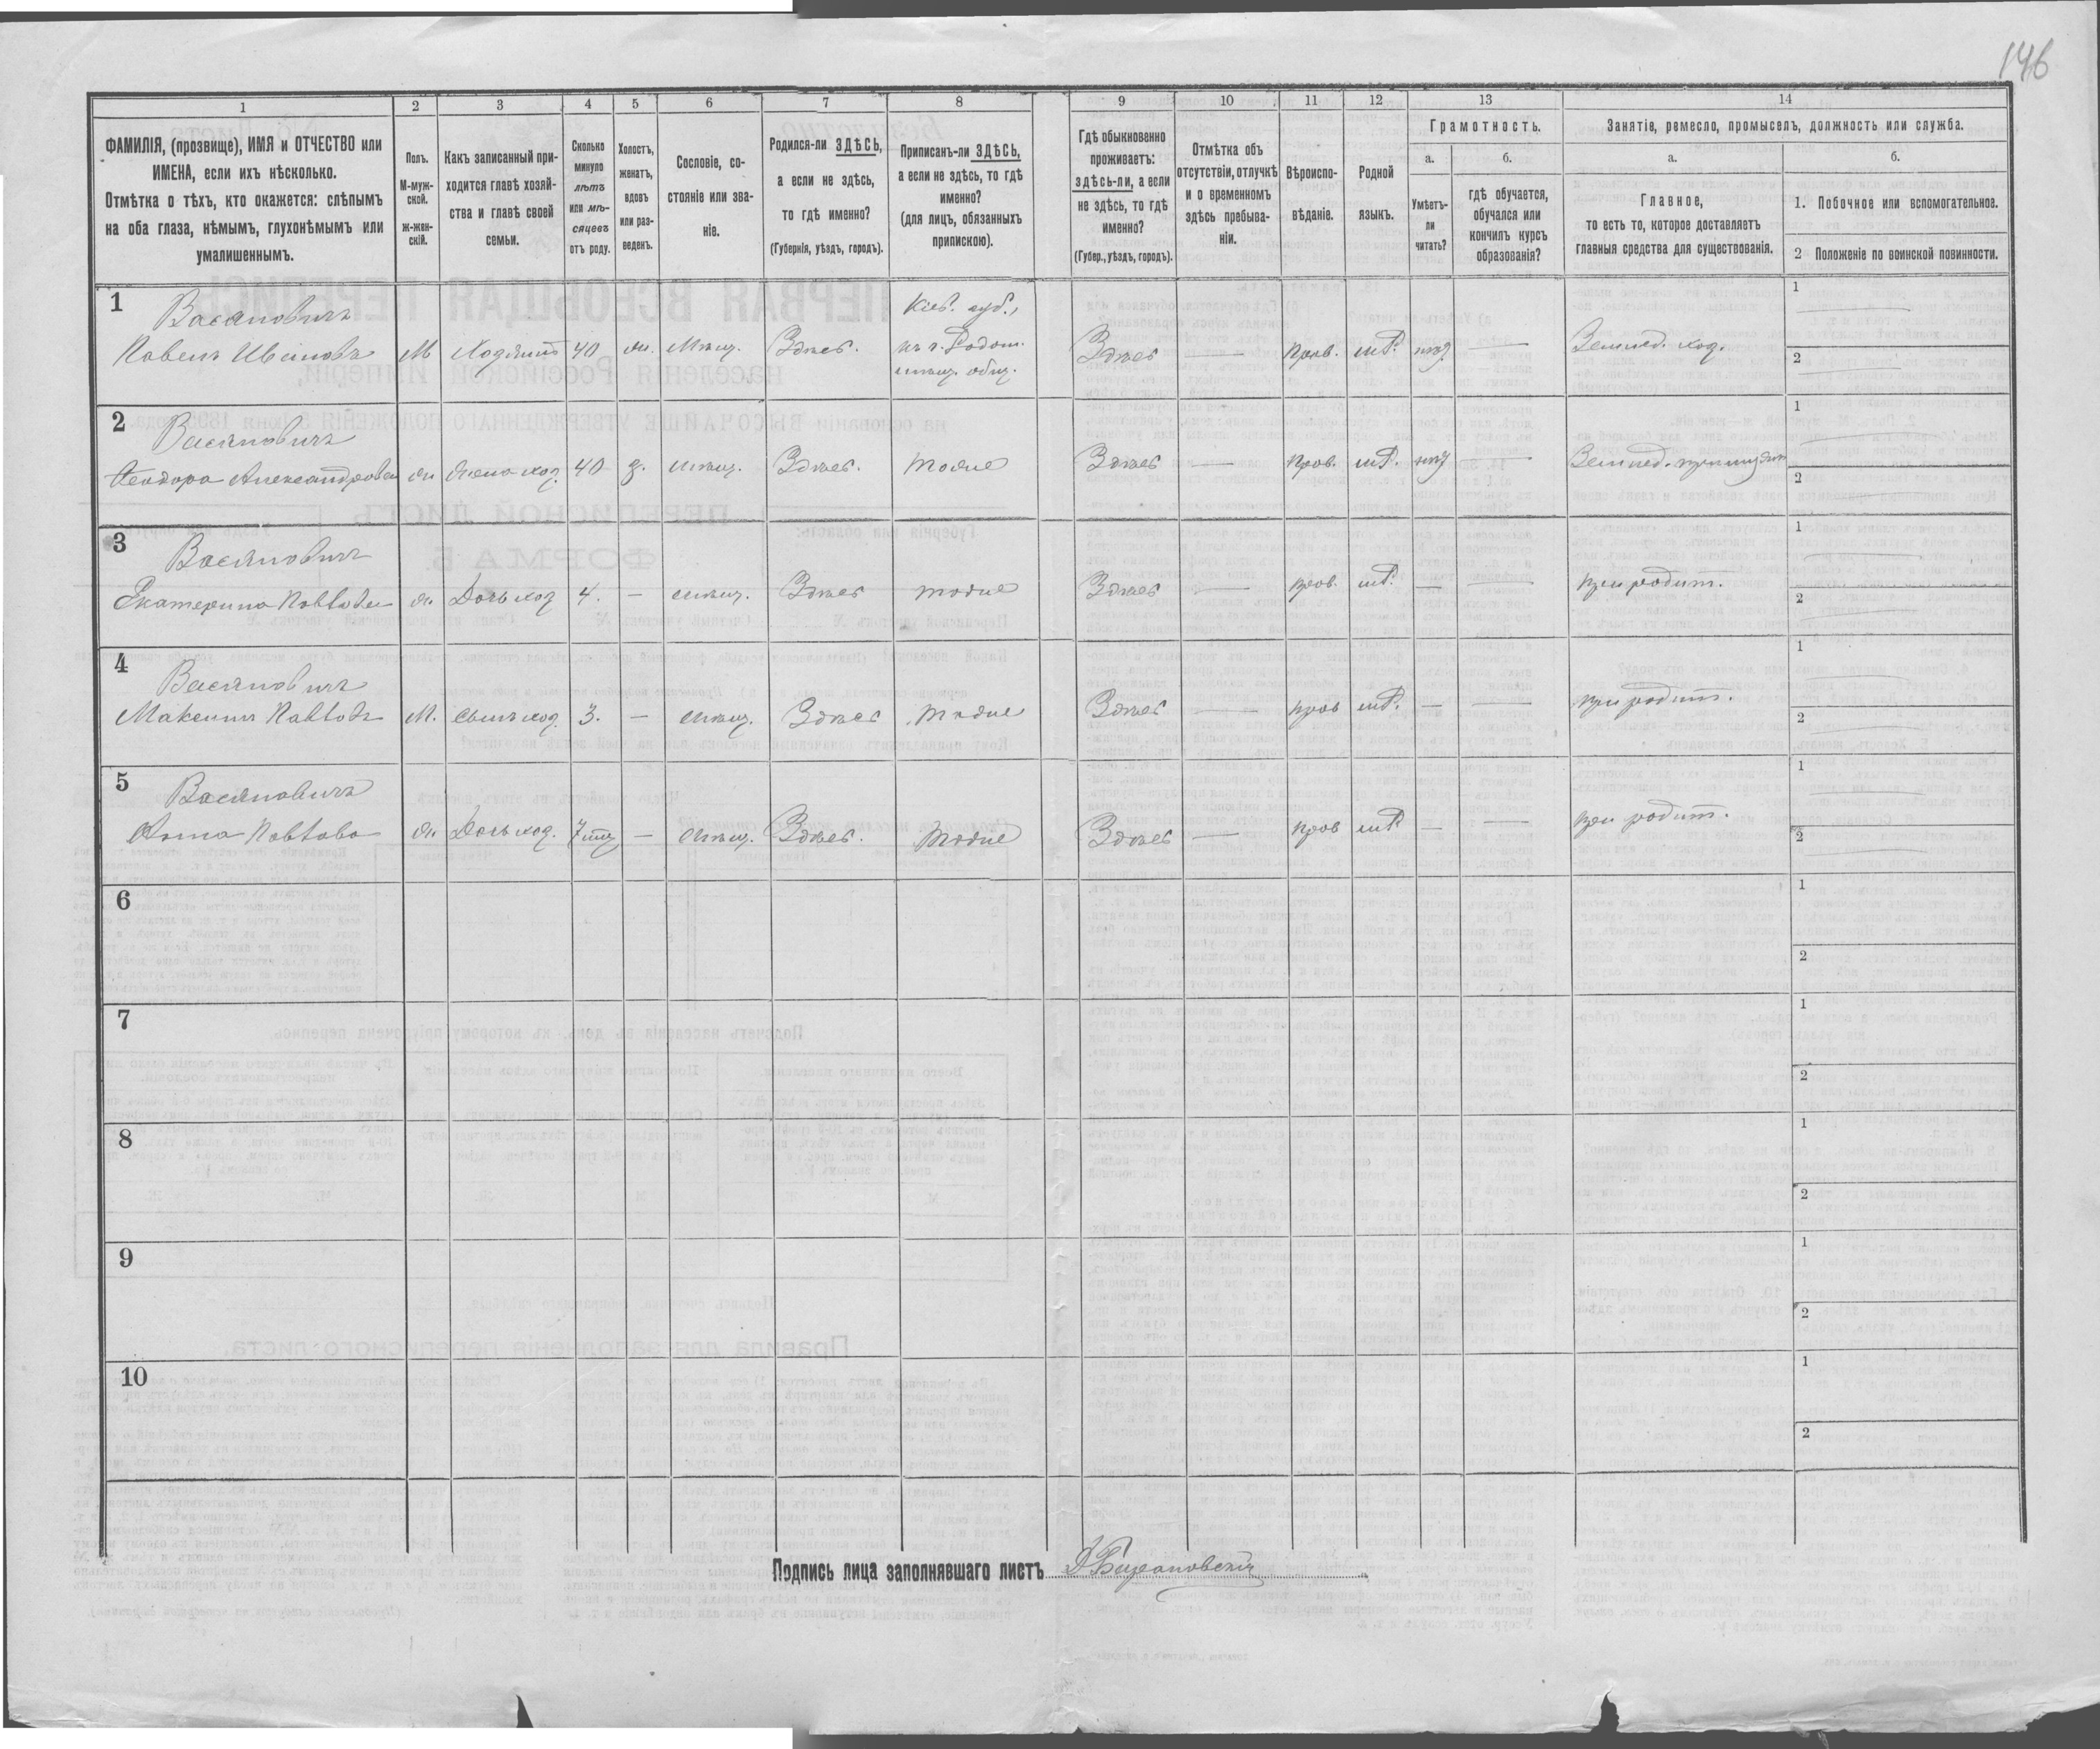 146
1
2
3
4
5
6
7
8
9
10
11
12
13
14
ФАМИЛІЯ, (прозвище), ИМЯ и ОТЧЕСТВО или
ИМЕНА, если ихъ нѣсколько.
Отмѣтка о тѣхъ, кто окажется: слѣпымъ
на оба глаза, нѣмымъ, глухонѣмымъ или
умалишеннымъ.
Полъ.
М-муж-
ской.
ж-жен-
скій.
Какъ записанный при-
ходится главѣ хозяй-
ства и главѣ своей
семьи.
Сколько
минуло
лѣтъ
или мѣ-
сяцевъ
отъ роду.
Холостъ,
женатъ,
вдовъ
или раз-
веденъ.
Сословіе, со-
стояніе или зва-
ніе.
Родился-ли ЗДѢСЬ,
а если не здѣсь,
то гдѣ именно?
(Губернія, уѣздъ, городъ).
Приписанъ-ли ЗДѢСЬ,
а если не здѣсь, то гдѣ
именно?
(для лицъ, обязанныхъ
припискою).
Гдѣ обыкновенно
проживаетъ:
здѣсь-ли, а если
не здѣсь, то гдѣ
именно?
(Губер., уѣздъ, городъ).
Отмѣтка объ
отсутствіи, отлучкѣ
и о временномъ
здѣсь пребыва-
ніи.
Вѣроиспо-
вѣданіе.
Родной
языкъ.
Грамотность.
а.
Умѣетъ-
ли
читать?
б.
гдѣ обучается,
обучался или
кончилъ курсъ
образованія?
Занятіе, ремесло, промыселъ, должность или служба.
а.
Главное,
то есть то, которое доставляетъ
главныя средства для существованія.
б.
1. Побочное или вспомогательное.
2 Положеніе по воинской повинности.
1
Васяновичъ
Павелъ Ивановъ
М
Хозяинъ
40
ж.
Мѣщ.
Здѣсь.
Кіев. губ.,
къ г. Радом.
мѣщ. общ.
Здѣсь
—
прав.
мР.
—
Землед. хоз.
1
2
2
Васяновичъ
Феодора Александрова
ж
Жена хоз.
40
з.
мѣщ.
Здѣсь.
тоже
Здѣсь
—
прав.
мР.
—
Землед.
1
2
3
Васяновичъ
Екатерина Павлова
ж.
Дочь хоз
4.
—
мѣщ.
Здѣсь
тоже
Здѣсь
—
прав.
мР.
—
—
при родит.
1
2
4
Васяновичъ
Максимъ Павловъ
М.
Сынъ хоз.
3.
—
мѣщ.
Здѣсь
тоже
Здѣсь
—
прав
мР.
—
—
при родит.
1
2
5
Васяновичъ
Анна Павлова
ж
Дочь хоз.
—
мѣщ.
Здѣсь.
тоже
Здѣсь
—
прав
мР
—
—
при родит.
1
2
6
1
2
7
1
2
8
1
2
9
1
2
10
1
2
Подпись лица заполнявшаго листъ